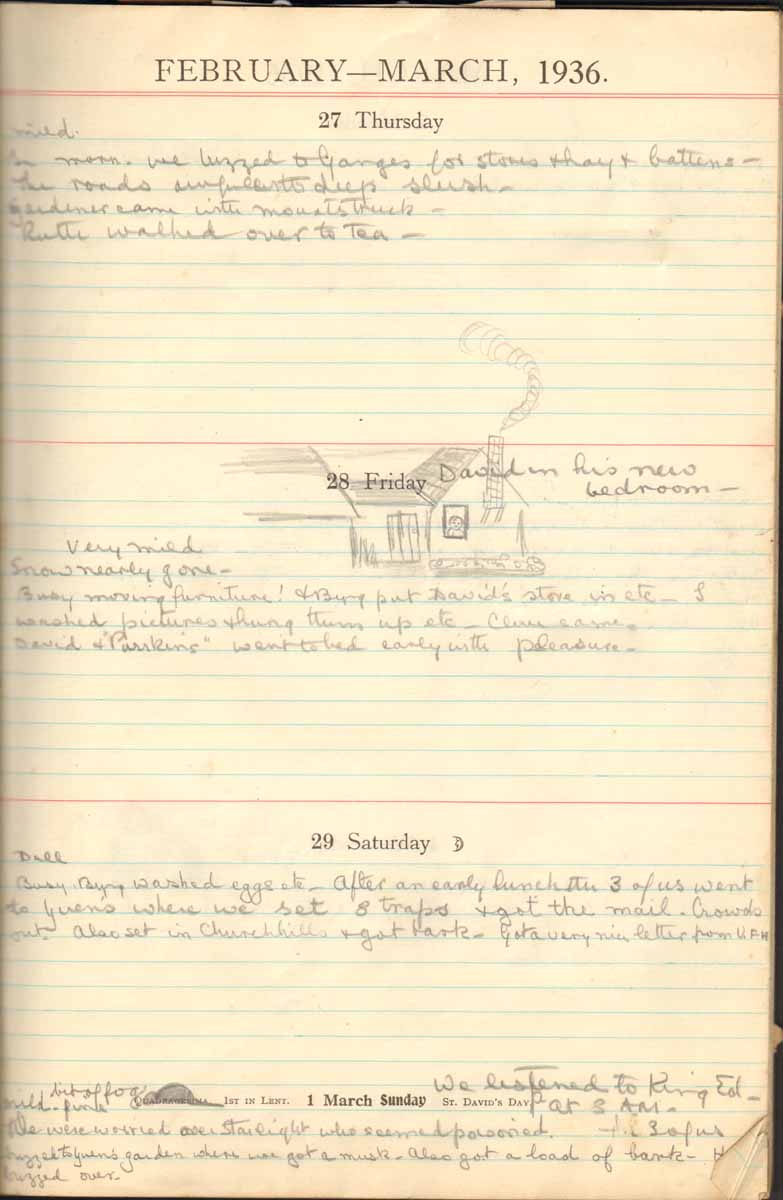 FEBRUARY—MARCH, 1936.
27 Thursday
mild.
In morn. we buzzed to Ganges for stores & hay & battens –
The roads deep slush –
Gardener came with truck –
Ruth walked over to Tea –
28 Friday
David in his new
bedroom –
Very mild
Snow nearly gone –
Busy moving furniture! & Byng put David's stove in etc – I
washed pictures & hung them up etc – came.
David & "Parrkins" went to bed early with pleasure –
29 Saturday
Dull
Busy. Byng washed eggs etc – After an early lunch the 3 of us went
to Yuen's where we set 8 traps & got the mail. Crowds
out. Also set in Churchhills & got bark – Got a very nice letter from
We listened to King Ed –
at 8 AM –
bit of fog
mild – fine
QUADRAGESIMA. 1ST IN LENT. 1 March Sunday ST. DAVID'S DAY.
We were worried over Starlight who seemed poisoned. 3 of us
buzzed to Yuen's garden where we got a musk – Also got a load of bark –
buzzed over –